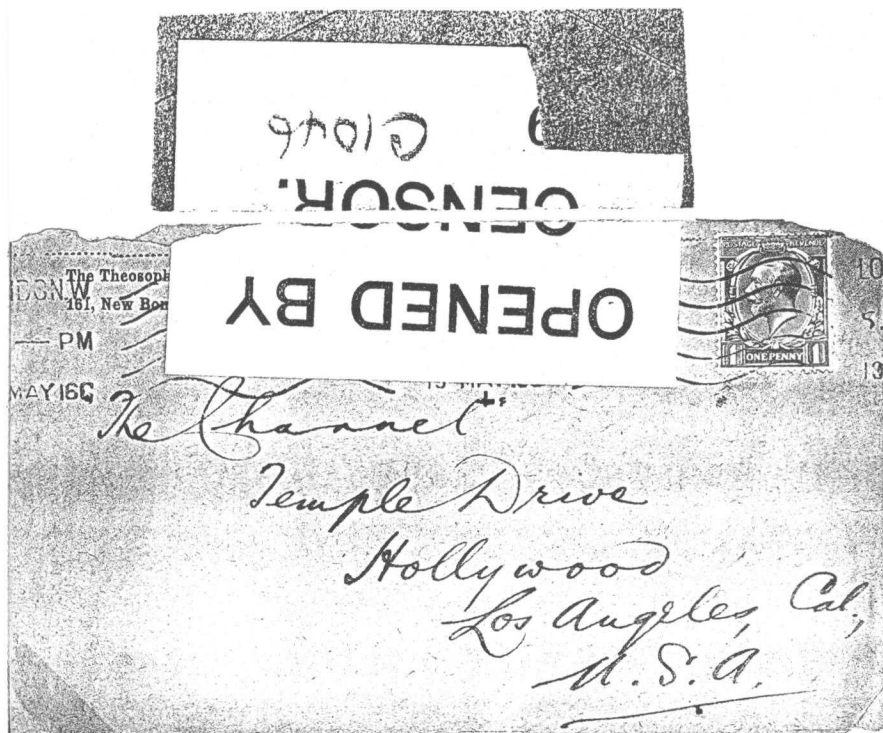 OPENED BY
CENSOR.
The Theosoph
161, New Bon
PM
MAY 16
LO
POSTAGE REVENUE
1 ONE PENNY 1
The Channel
Temple Drive
Hollywood
Los Angeles, Cal.,
U.S.A.